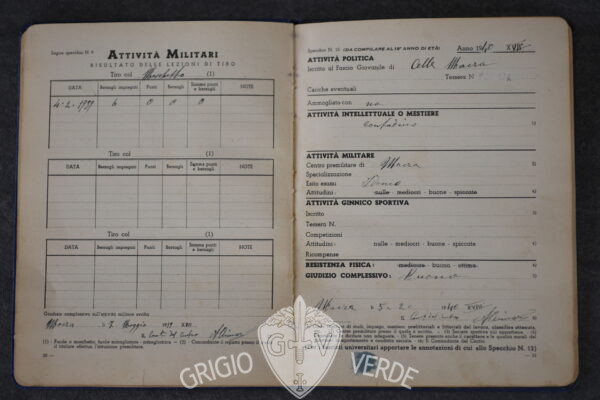 Segue specchio N. 9
ATTIVITÀ MILITARI
RISULTATO DELLE LEZIONI DI TIRO
Tiro col Moschetto (1)
DATA Bersagli impiegati Punti Bersagli Somma punti e bersagli NOTE
4-2-1939 6 0 0 0
Tiro col (1)
DATA Bersagli impiegati Punti Bersagli Somma punti e bersagli NOTE
Tiro col (1)
DATA Bersagli impiegati Punti Bersagli Somma punti e bersagli NOTE
Giudizio complessivo sull'attività militare svolta
Macra, 7 Maggio 1939 XVII
(1) - Fucile o moschetto, fucile mitragliatore - mitragliatrice - (2) - Comandante il reparto presso il quale
il titolare effettua l'istruzione premilitare.
Specchio N. 10 (DA COMPILARE AL 18° ANNO DI ETÀ) Anno 1940 XVIII
ATTIVITÀ POLITICA
Iscritto al Fascio Giovanile di Celle Macra
Tessera N.
Cariche eventuali
Ammogliato con no
ATTIVITÀ INTELLETTUALE O MESTIERE
contadino
ATTIVITÀ MILITARE
Centro premilitare di Macra
Specializzazione
Esito esami Idoneo
Attitudini: nulle - mediocri - buone - spiccate
ATTIVITÀ GINNICO SPORTIVA
Iscritto
Tessera N.
Competizioni
Attitudini: nulle - mediocri - buone - spiccate
Ricompense
RESISTENZA FISICA: mediocre - buona - ottima
GIUDIZIO COMPLESSIVO: Buono
Macra, 5 2 1940 XVIII
(Gli studenti universitari apportare le annotazioni di cui allo Specchio N. 12)
GRIGIO VERDE
G V